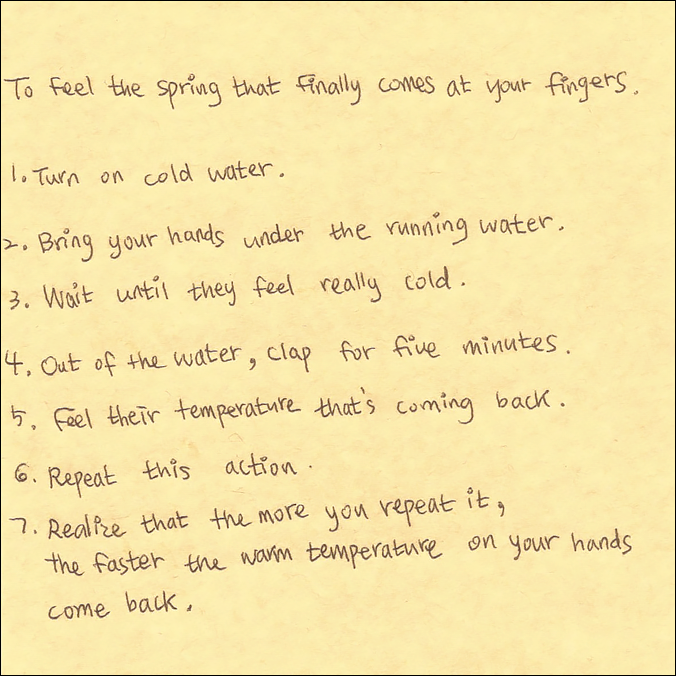 To feel the spring that finally comes at your fingers.
1. Turn on cold water.
2. Bring your hands under the running water.
3. Wait until they feel really cold.
4. Out of the water, clap for five minutes.
5. Feel their temperature that's coming back.
6. Repeat this action.
7. Realize that the more you repeat it,
the faster the warm temperature on your hands
come back.